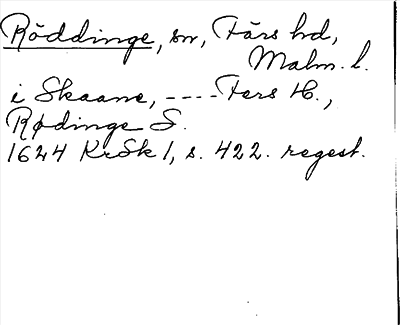 Röddinge, sn, Färs hd,
Malm. l.
i Skaane, ---- Fers H.,
Rødinge S.
1624 KrSk 1, s. 422. regest.